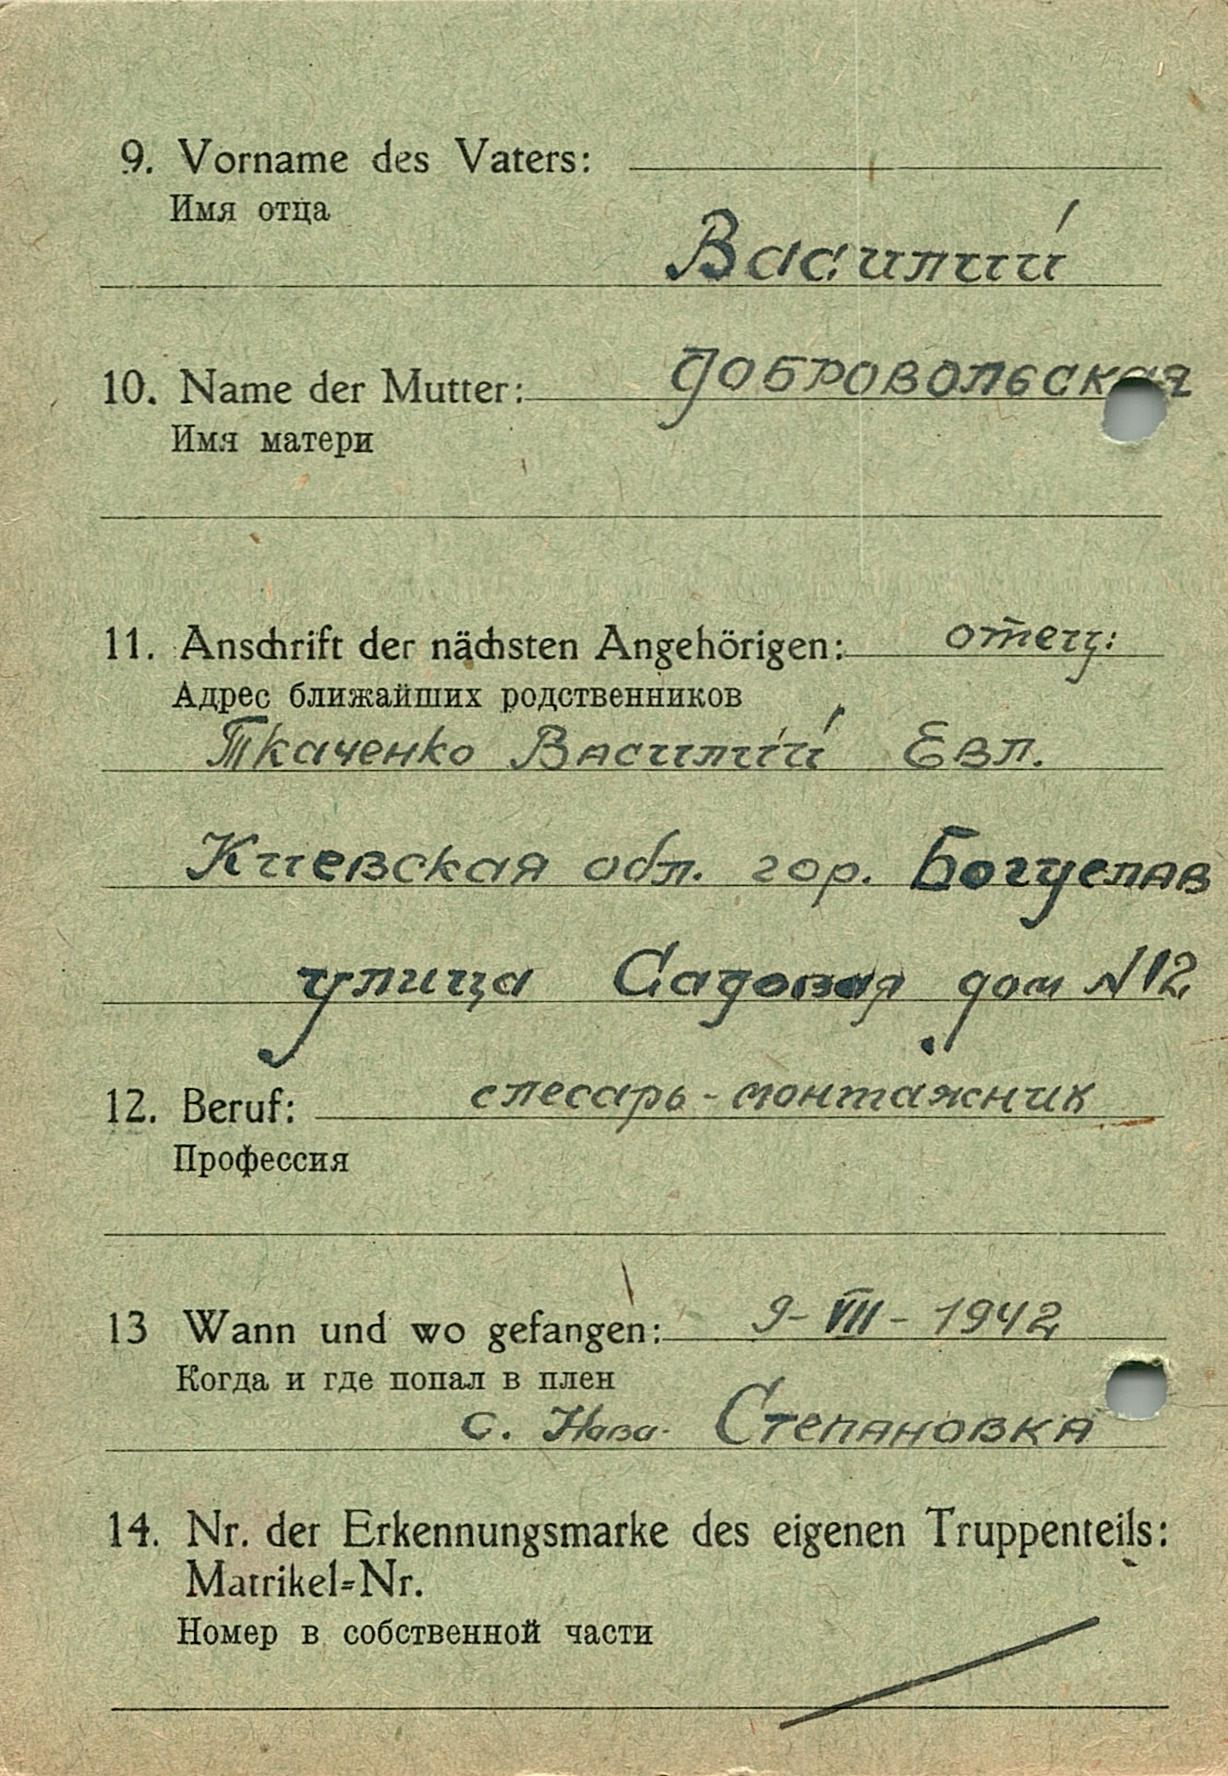 9. Vorname des Vaters:
Имя отца
Василий
10. Name der Mutter: Добровольская
Имя матери
11. Anschrift der nächsten Angehörigen: отец:
Адрес ближайших родственников
Ткаченко Василий Евл.
Киевская обл. гор. Богуслав
улица Садовая дом №12
12. Beruf: слесарь-монтажник
Профессия
13 Wann und wo gefangen: 9-VII-1942
Когда и где попал в плен
с. Нова-Степановка
14. Nr. der Erkennungsmarke des eigenen Truppenteils:
Matrikel=Nr.
Номер в собственной части